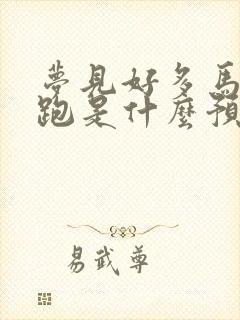 夢見好多馬
跑是什麼預
易武尊